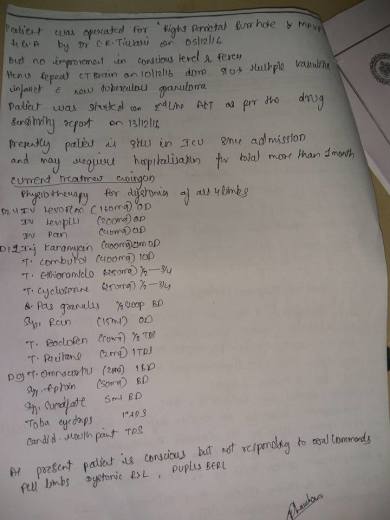 Patient was operated for "Right Parietal Burrhole &
by Dr C.R. Tiwari on 05/12/16
But no improvement in conscious level & fever
Hence Repeat CT Brain on 10/12/16 done s/o Multiple vasculitic
infarct c new tuberculous granuloma
Patient was started on 2nd line AKT as per the drug
Sensitivity report on 13/12/16
Presently patient is still in ICU since admission
and may require hospitalisation for total more than 1 month
Current treatment ongoing
Physiotherapy for dystonia of all 4 limbs
IV Levoflox (160mg) OD
IV Levipil (200mg) OD
IV Pan (40mg) OD
Inj Kanamycin (400mg) OD
T. Combutol (400mg) 1OD
T. Ethionamide (250mg) ½—¾
T. Cycloserine (250mg) ½—¾
Pas granules BD
Syp. Rcin (15ml) OD
T. Baclofen (10mg) ½ TDS
T. Pacitane (2mg) 1TDS
T. Omnacortil 1BD
Syp. Eptoin (5ml) BD
Syp. Sucralfate 5ml BD
Toba eyedrops
Candid mouth paint TDS
At present patient is conscious but not responding to oral commands
All limbs dystonic, pupils BERL